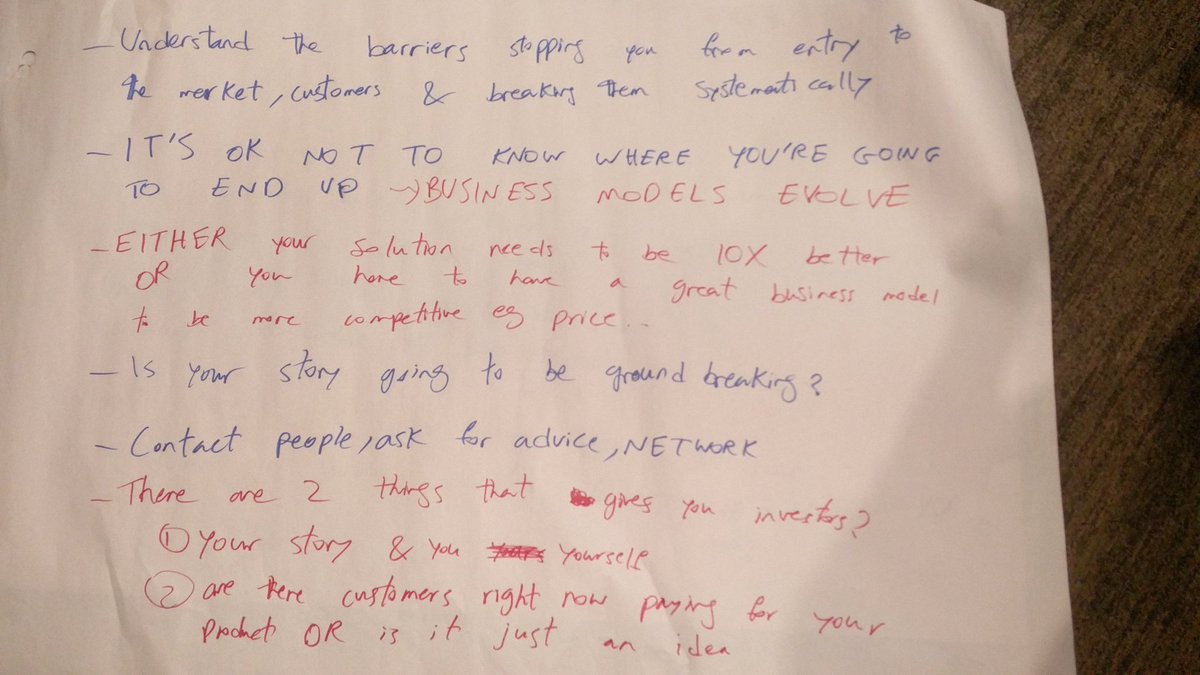 - Understand the barriers stopping you from entry to
the market, customers & breaking them systematically
- IT'S OK NOT TO KNOW WHERE YOU'RE GOING
TO END UP → BUSINESS MODELS EVOLVE
- EITHER your solution needs to be 10X better
OR you have to have a great business model
to be more competitive eg price..
- Is your story going to be ground breaking?
- Contact people, ask for advice, NETWORK
- There are 2 things that gives you investors?
① Your story & you yourself
② are there customers right now paying for your
product OR is it just an idea